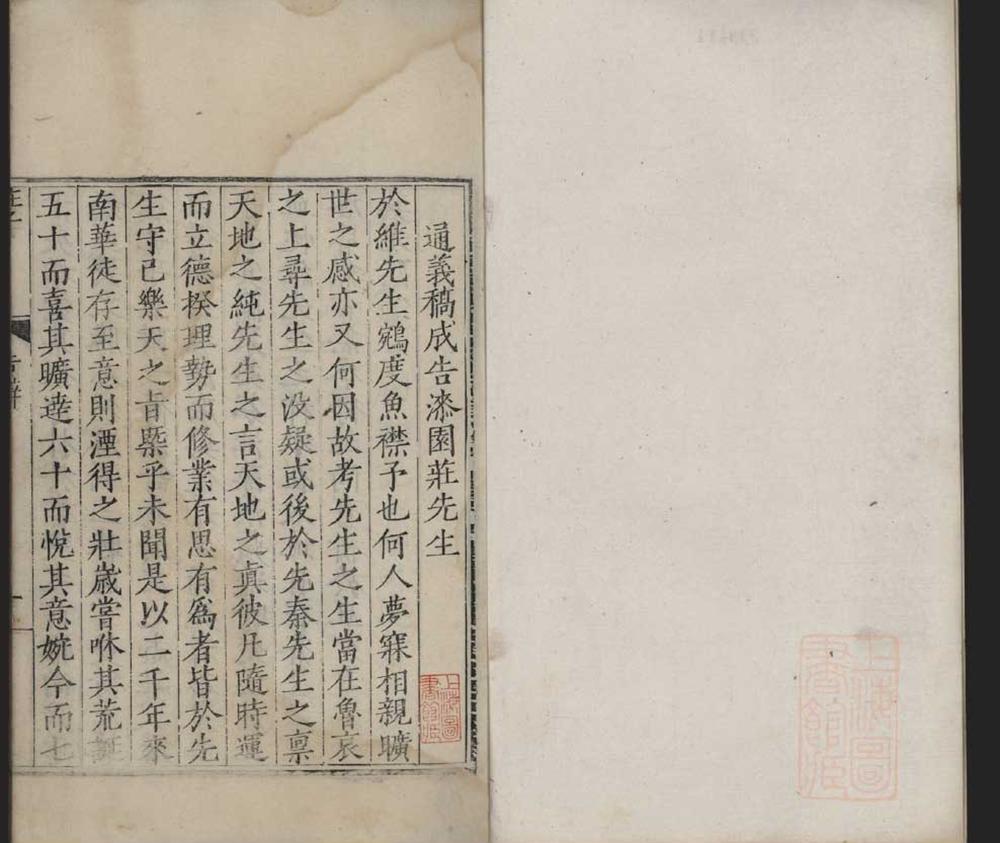 通義稿成告漆園莊先生
於維先生鵷度魚襟予也何人夢寐相親曠
世之感亦又何因故考先生之生當在魯哀
之上尋先生之没疑或後於先秦先生之禀
天地之純先生之言天地之真彼凡隨時運
而立德揆理勢而修業有思有爲者皆於先
生守已樂天之旨槩乎未聞是以二千年來
南華徒存至意則湮得之壯歲嘗咻其荒誕
五十而喜其曠逹六十而悅其意婉今而七
上海圖書館藏